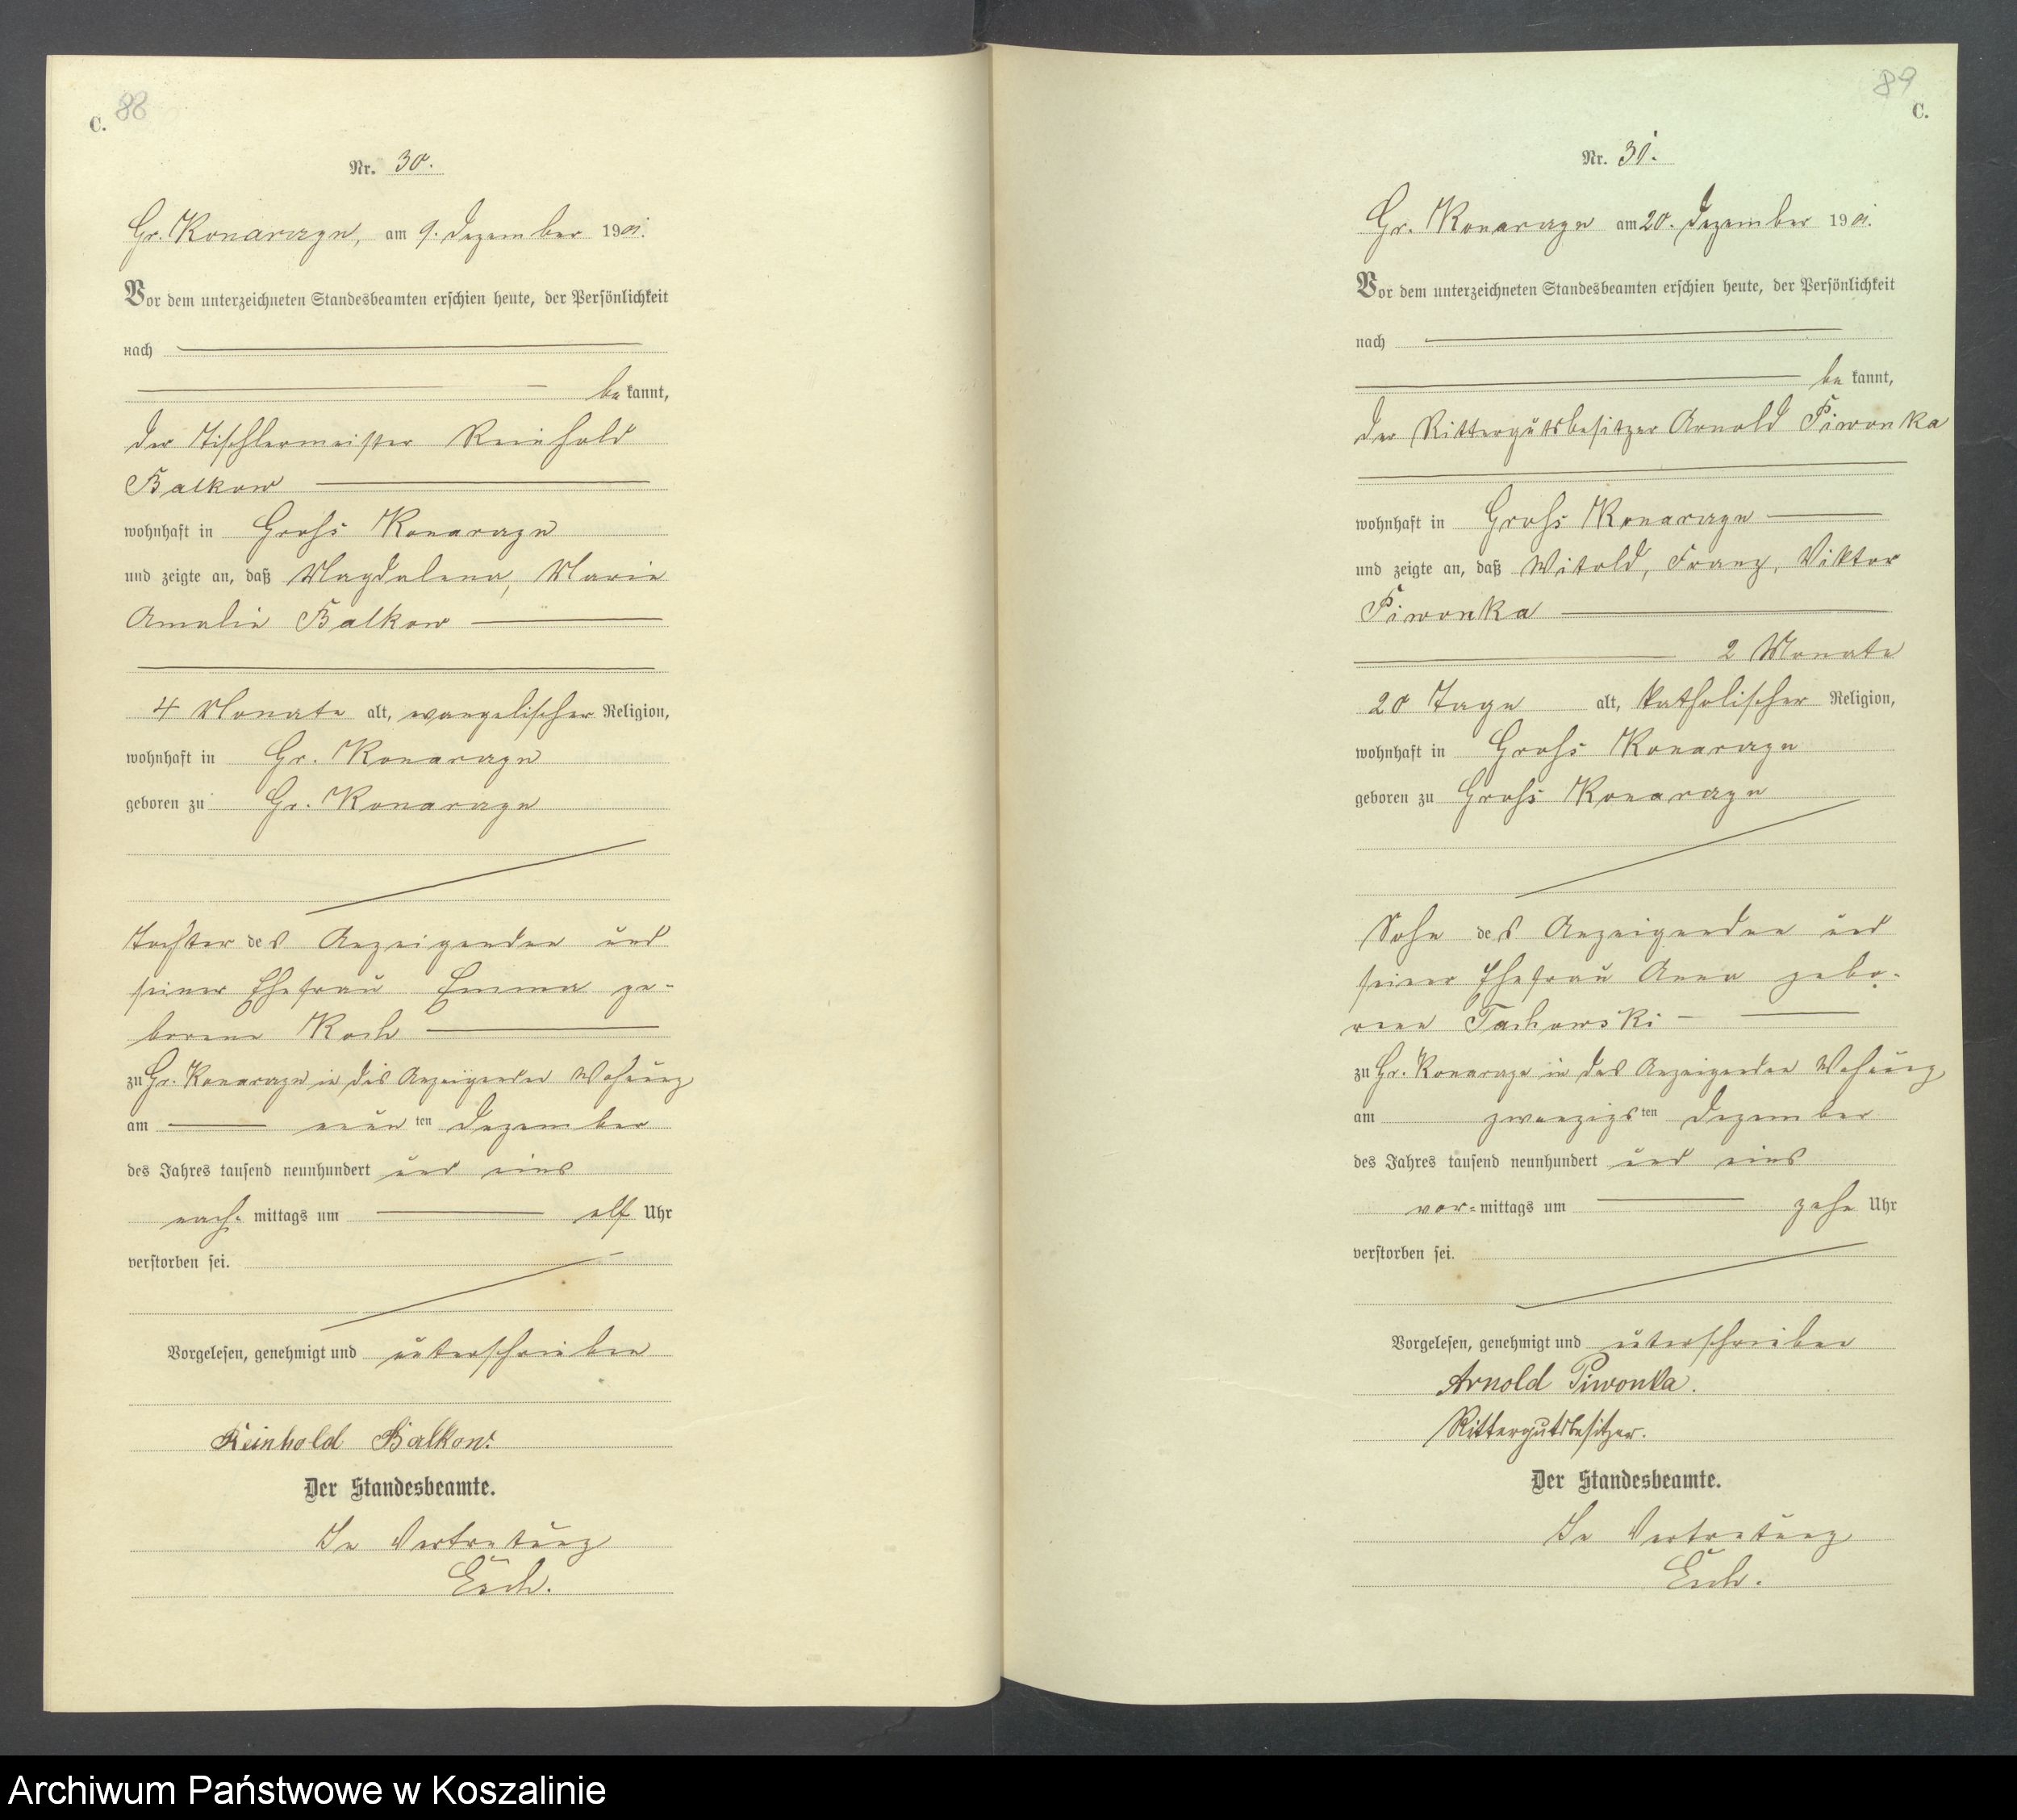 88
C.
Nr. 30.
Gr. Konarczyn, am 9. Dezember 1901.
Vor dem unterzeichneten Standesbeamten erschien heute, der Persönlichkeit
nach
be kannt,
der Tischlermeister Reinhold
Balkow
wohnhaft in Groß Konarczyn
und zeigte an, daß Magdalena, Marie
Amalie Balkow
4 Monate alt, evangelischer Religion,
wohnhaft in Gr. Konarczyn
geboren zu Gr. Konarczyn
Tochter des Anzeigenden und
seiner Ehefrau Emma ge-
borene Koch
zu Gr. Konarczyn in des Anzeigenden Wohnung
am neun ten Dezember
des Jahres tausend neunhundert und eins
nach- mittags um elf Uhr
verstorben sei.
Vorgelesen, genehmigt und unterschrieben
Reinhold Balkow.
Der Standesbeamte.
In Vertretung
89
C.
Nr. 31.
Gr. Konarczyn am 20. Dezember 1901.
Vor dem unterzeichneten Standesbeamten erschien heute, der Persönlichkeit
nach
be kannt,
der Rittergutsbesitzer Arnold Piwonka
wohnhaft in Groß Konarczyn
und zeigte an, daß Witold, Franz, Viktor
Piwonka
2 Monate
20 Tage alt, katholischer Religion,
wohnhaft in Groß Konarczyn
geboren zu Groß Konarczyn
Sohn des Anzeigenden und
seiner Ehefrau Anna gebo-
rene Tachowski
zu Gr. Konarczyn in des Anzeigenden Wohnung
am zwanzigs ten Dezember
des Jahres tausend neunhundert und eins
vor- mittags um zehn Uhr
verstorben sei.
Vorgelesen, genehmigt und unterschrieben
Arnold Piwonka.
Rittergutsbesitzer.
Der Standesbeamte.
In Vertretung
Archiwum Państwowe w Koszalinie